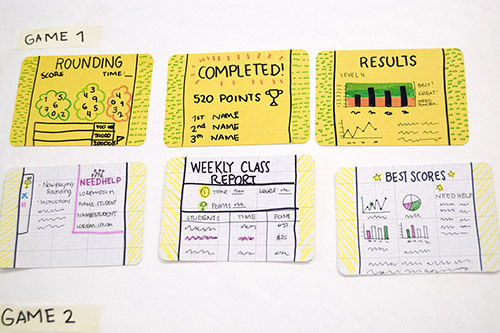 GAME 1
ROUNDING
SCORE TIME:
COMPLETED!
520 POINTS
1ST NAME
2ND NAME
3RD NAME
RESULTS
LEVEL 4
GREAT!
NEED
Now playing
Rounding
Instructions
NEED HELP
LOREM IPSUM
NAME STUDENT
NAME STUDENT
LOREM IPSUM
WEEKLY CLASS
REPORT
Time: Level:
Points
STUDENTS TIME POINTS
BEST SCORES
NEED HELP
GAME 2